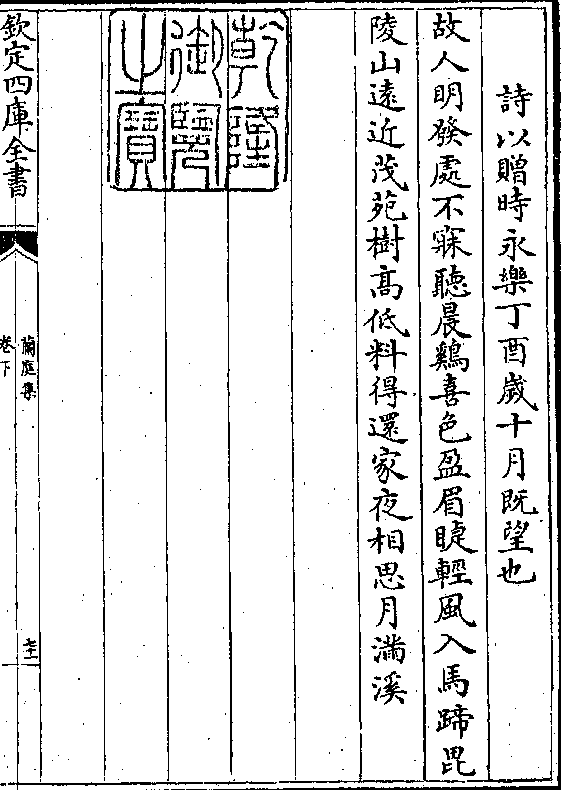 詩以贈時永樂丁酉嵗十月既望也
故人明發處不寐聽晨鷄喜色盈眉睫輕風入馬蹄毘
陵山遠近茂苑樹髙低料得還家夜相思月滿溪
乾隆御覽之寶
欽定四庫全書
蘭庭集
卷下